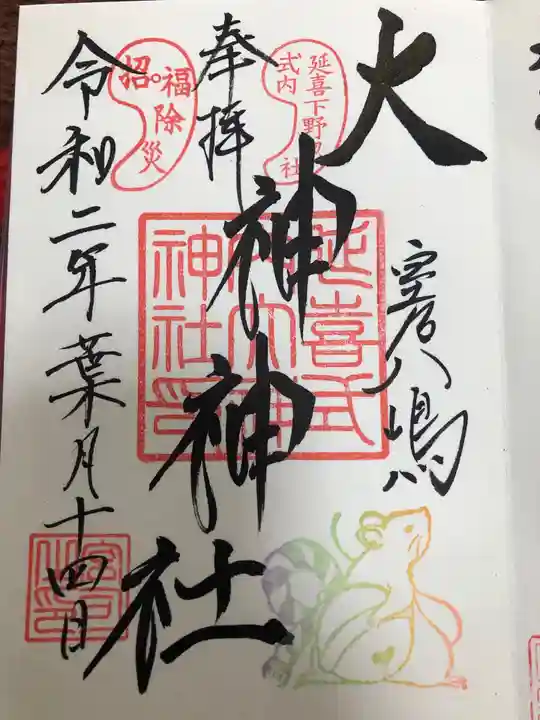 大神神社
室八嶋
奉拝
延喜下野
式内
社
招福除災
延喜式
内大神
神社印
令和二年葉月十四日